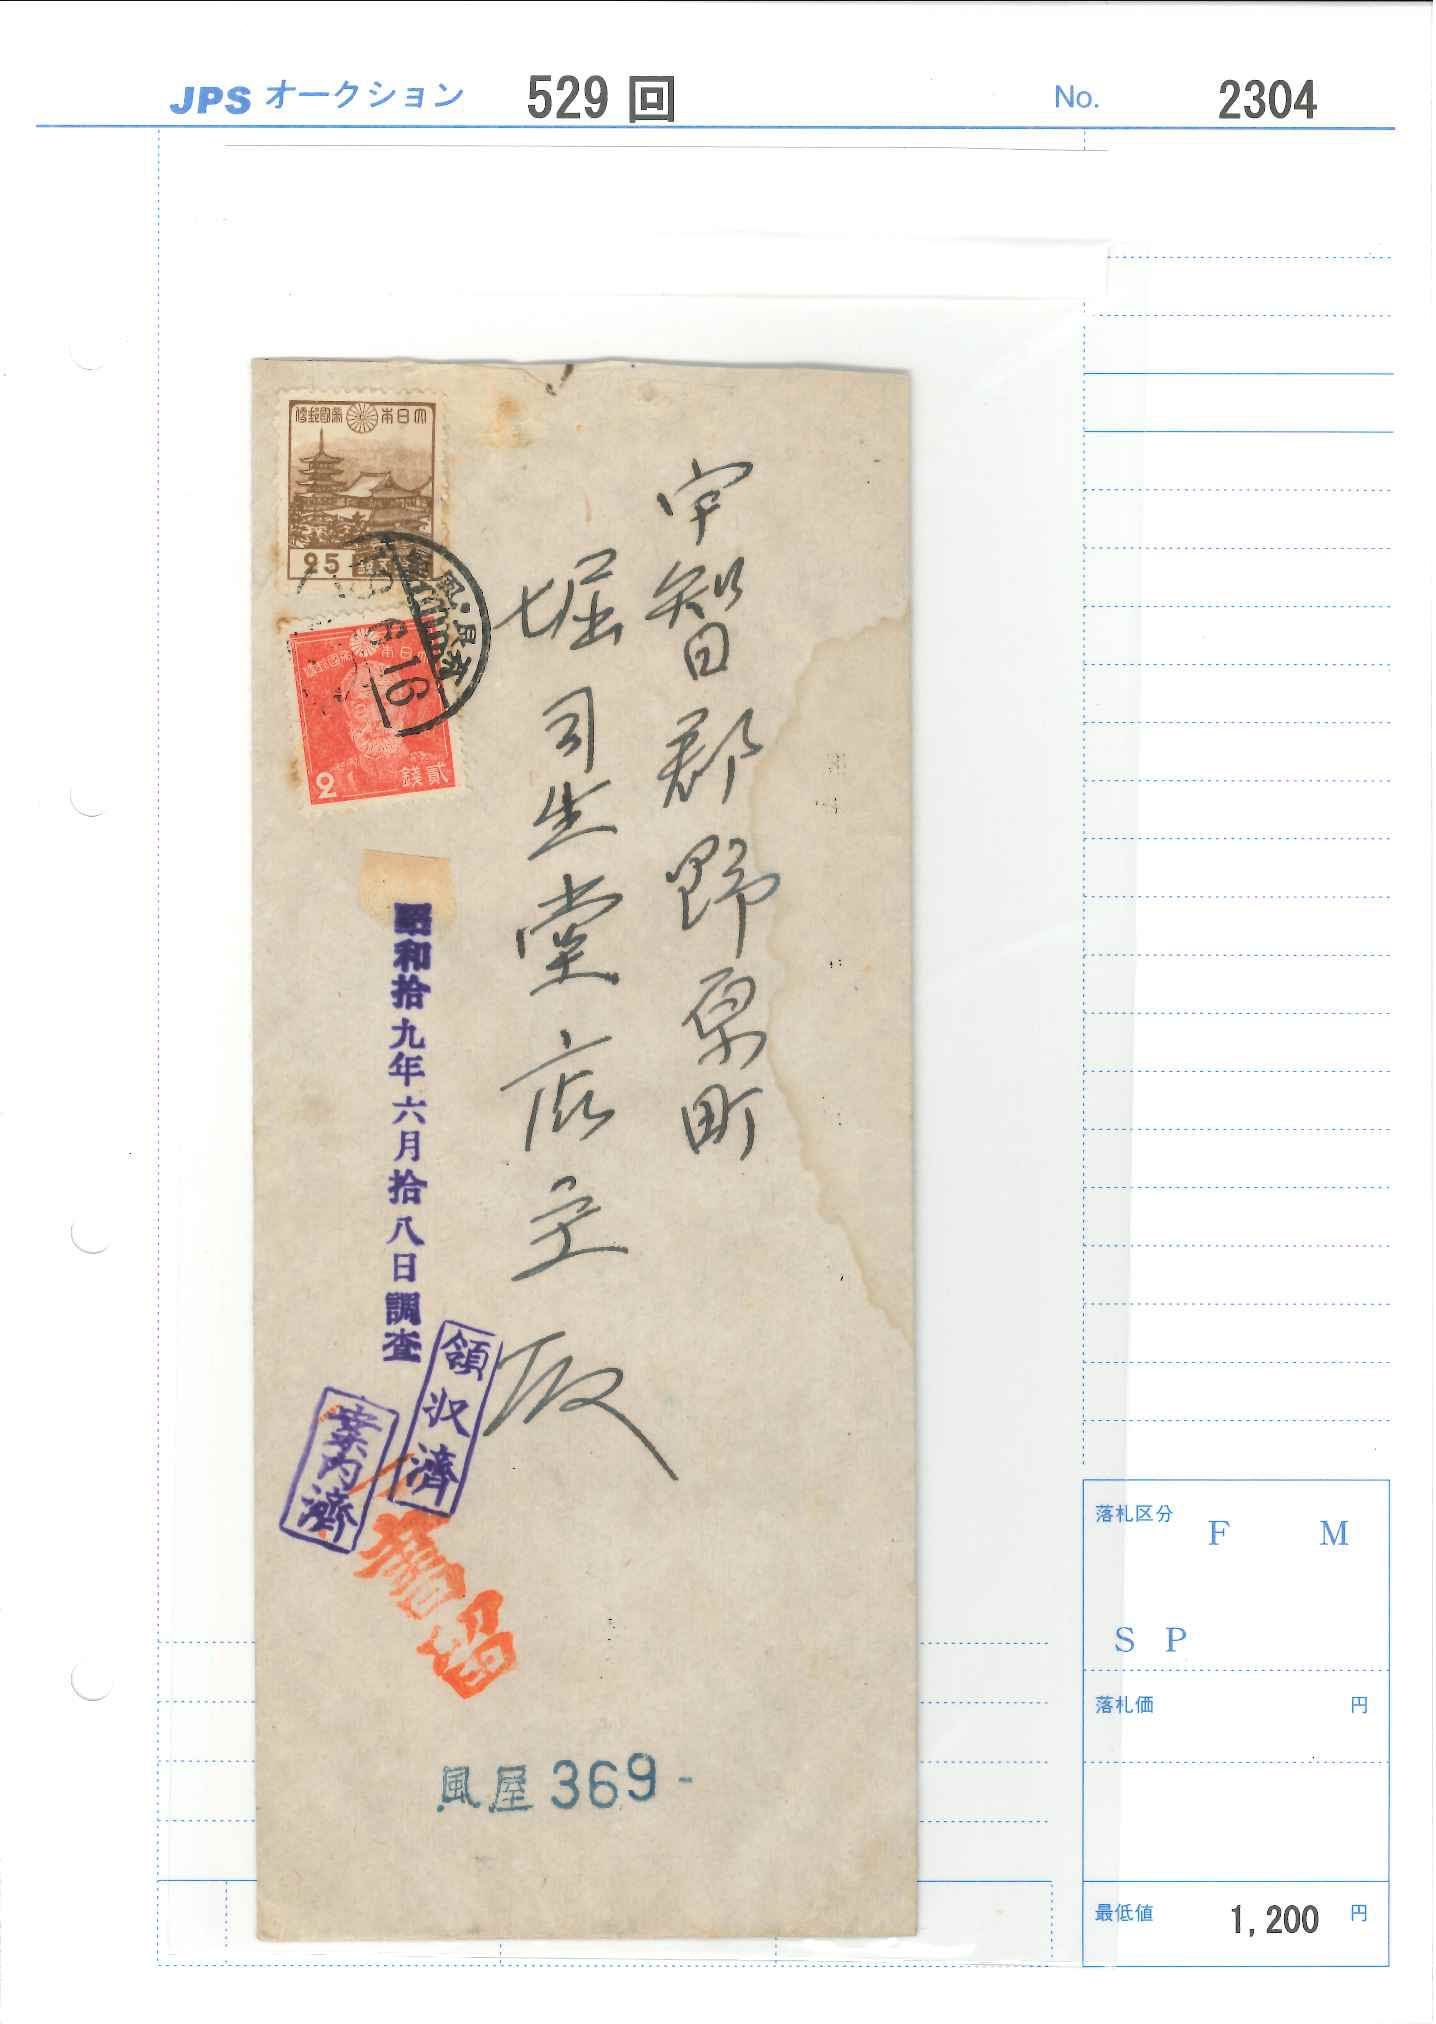 JPS オークション 529 回 No. 2304
大日本帝國郵便
25
大日本帝國郵便
2 貳錢
6.16
宇智郡野原町
堀司生堂店主殿
昭和拾九年六月拾八日調査
領収濟
案内濟
書留
風屋 369-
落札区分 F M
S P
落札価 円
最低値 1,200 円